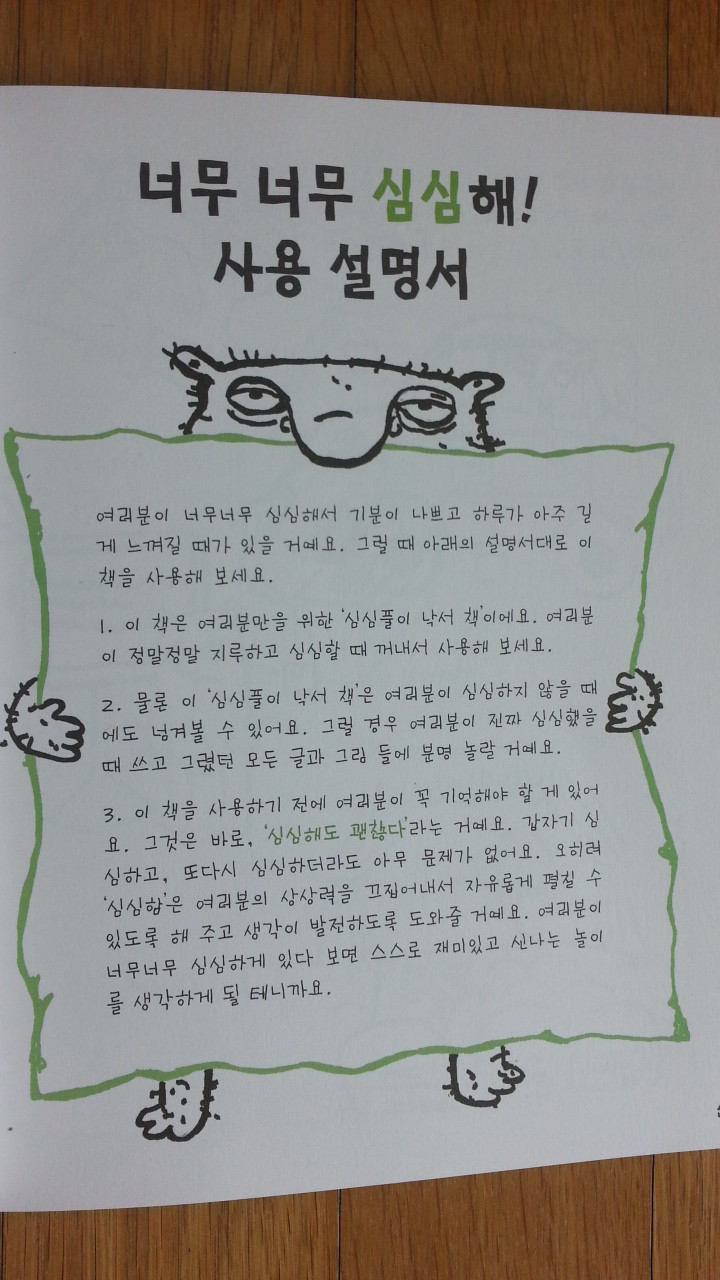 너무 너무 심심해!
사용 설명서
여러분이 너무너무 심심해서 기분이 나쁘고 하루가 아주 길
게 느껴질 때가 있을 거예요. 그럴 때 아래의 설명서대로 이
책을 사용해 보세요.
1. 이 책은 여러분만을 위한 '심심풀이 낙서 책'이에요. 여러분
이 정말정말 지루하고 심심할 때 꺼내서 사용해 보세요.
2. 물론 이 '심심풀이 낙서 책'은 여러분이 심심하지 않을 때
에도 넘겨볼 수 있어요. 그럴 경우 여러분이 진짜 심심했을
때 쓰고 그렸던 모든 글과 그림 들에 분명 놀랄 거예요.
3. 이 책을 사용하기 전에 여러분이 꼭 기억해야 할 게 있어
요. 그것은 바로, '심심해도 괜찮다'라는 거예요. 갑자기 심
심하고, 또다시 심심하더라도 아무 문제가 없어요. 오히려
'심심함'은 여러분의 상상력을 끄집어내서 자유롭게 펼칠 수
있도록 해 주고 생각이 발전하도록 도와줄 거예요. 여러분이
너무너무 심심하게 있다 보면 스스로 재미있고 신나는 놀이
를 생각하게 될 테니까요.